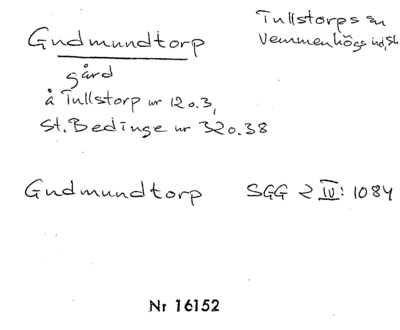 Gudmundtorp
Tullstorps sn
Vemmenhögs hd, Sk
gård
å Tullstorp nr 12 o. 3,
St. Bedinge nr 32 o. 38
Gudmundtorp SGG 2 IV: 1084
Nr 16152